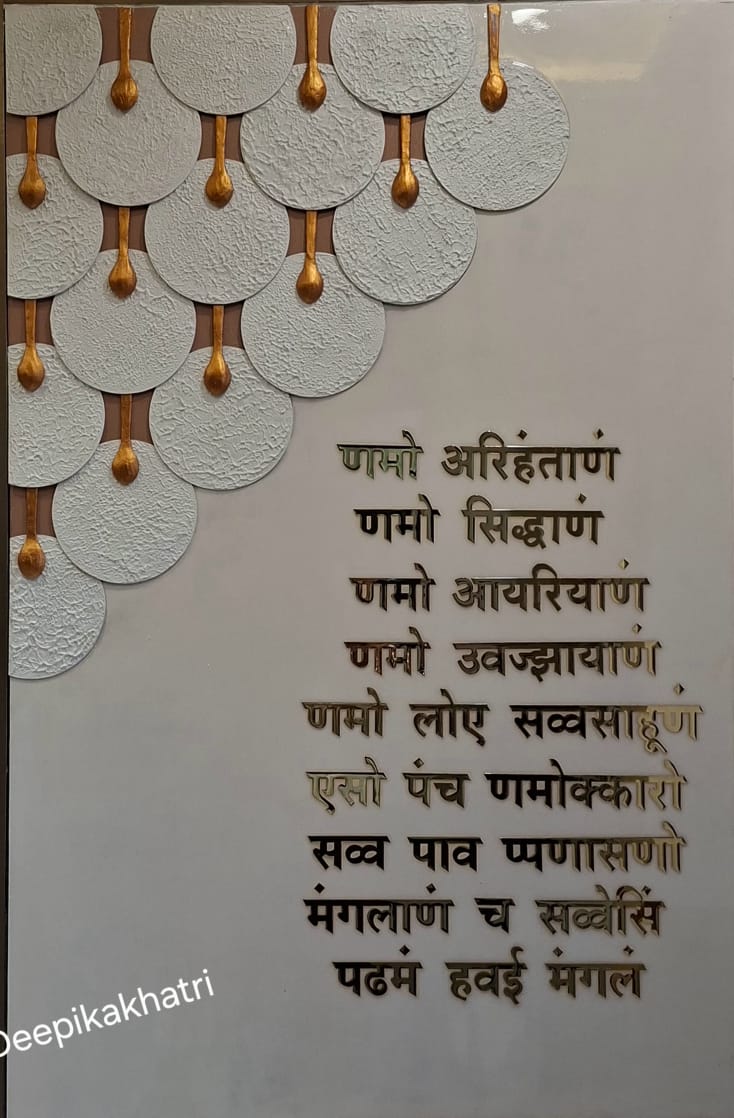 णमो अरिहंताणं
णमो सिद्धाणं
णमो आयरियाणं
णमो उवज्झायाणं
णमो लोए सव्वसाहूणं
एसो पंच णमोक्कारो
सव्व पाव प्पणासणो
मंगलाणं च सव्वेसिं
पढमं हवई मंगलं
Deepikakhatri